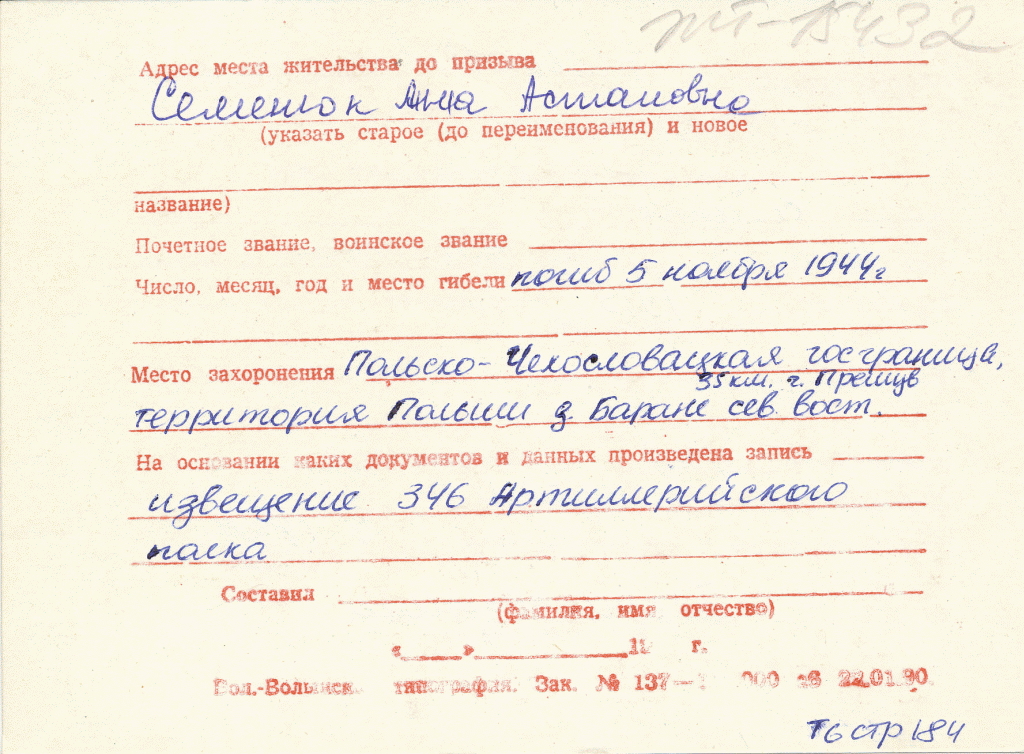 пт-15432
Адрес места жительства до призыва
Семенюк Анна Астаповна
(указать старое (до переименования) и новое
название)
Почетное звание, воинское звание
Число, месяц, год и место гибели погиб 5 ноября 1944 г
Место захоронения Польско-Чехословацкая госграница,
35 км. г. Прешув
территория Польши д. Баране сев. вост.
На основании каких документов и данных произведена запись
извещение 346 Артиллерийского
полка
Составил
(фамилия, имя отчество)
« » 19 г.
Вол.-Волынск. типография. Зак. № 137— 000 22.01.90.
Т 6 стр 184